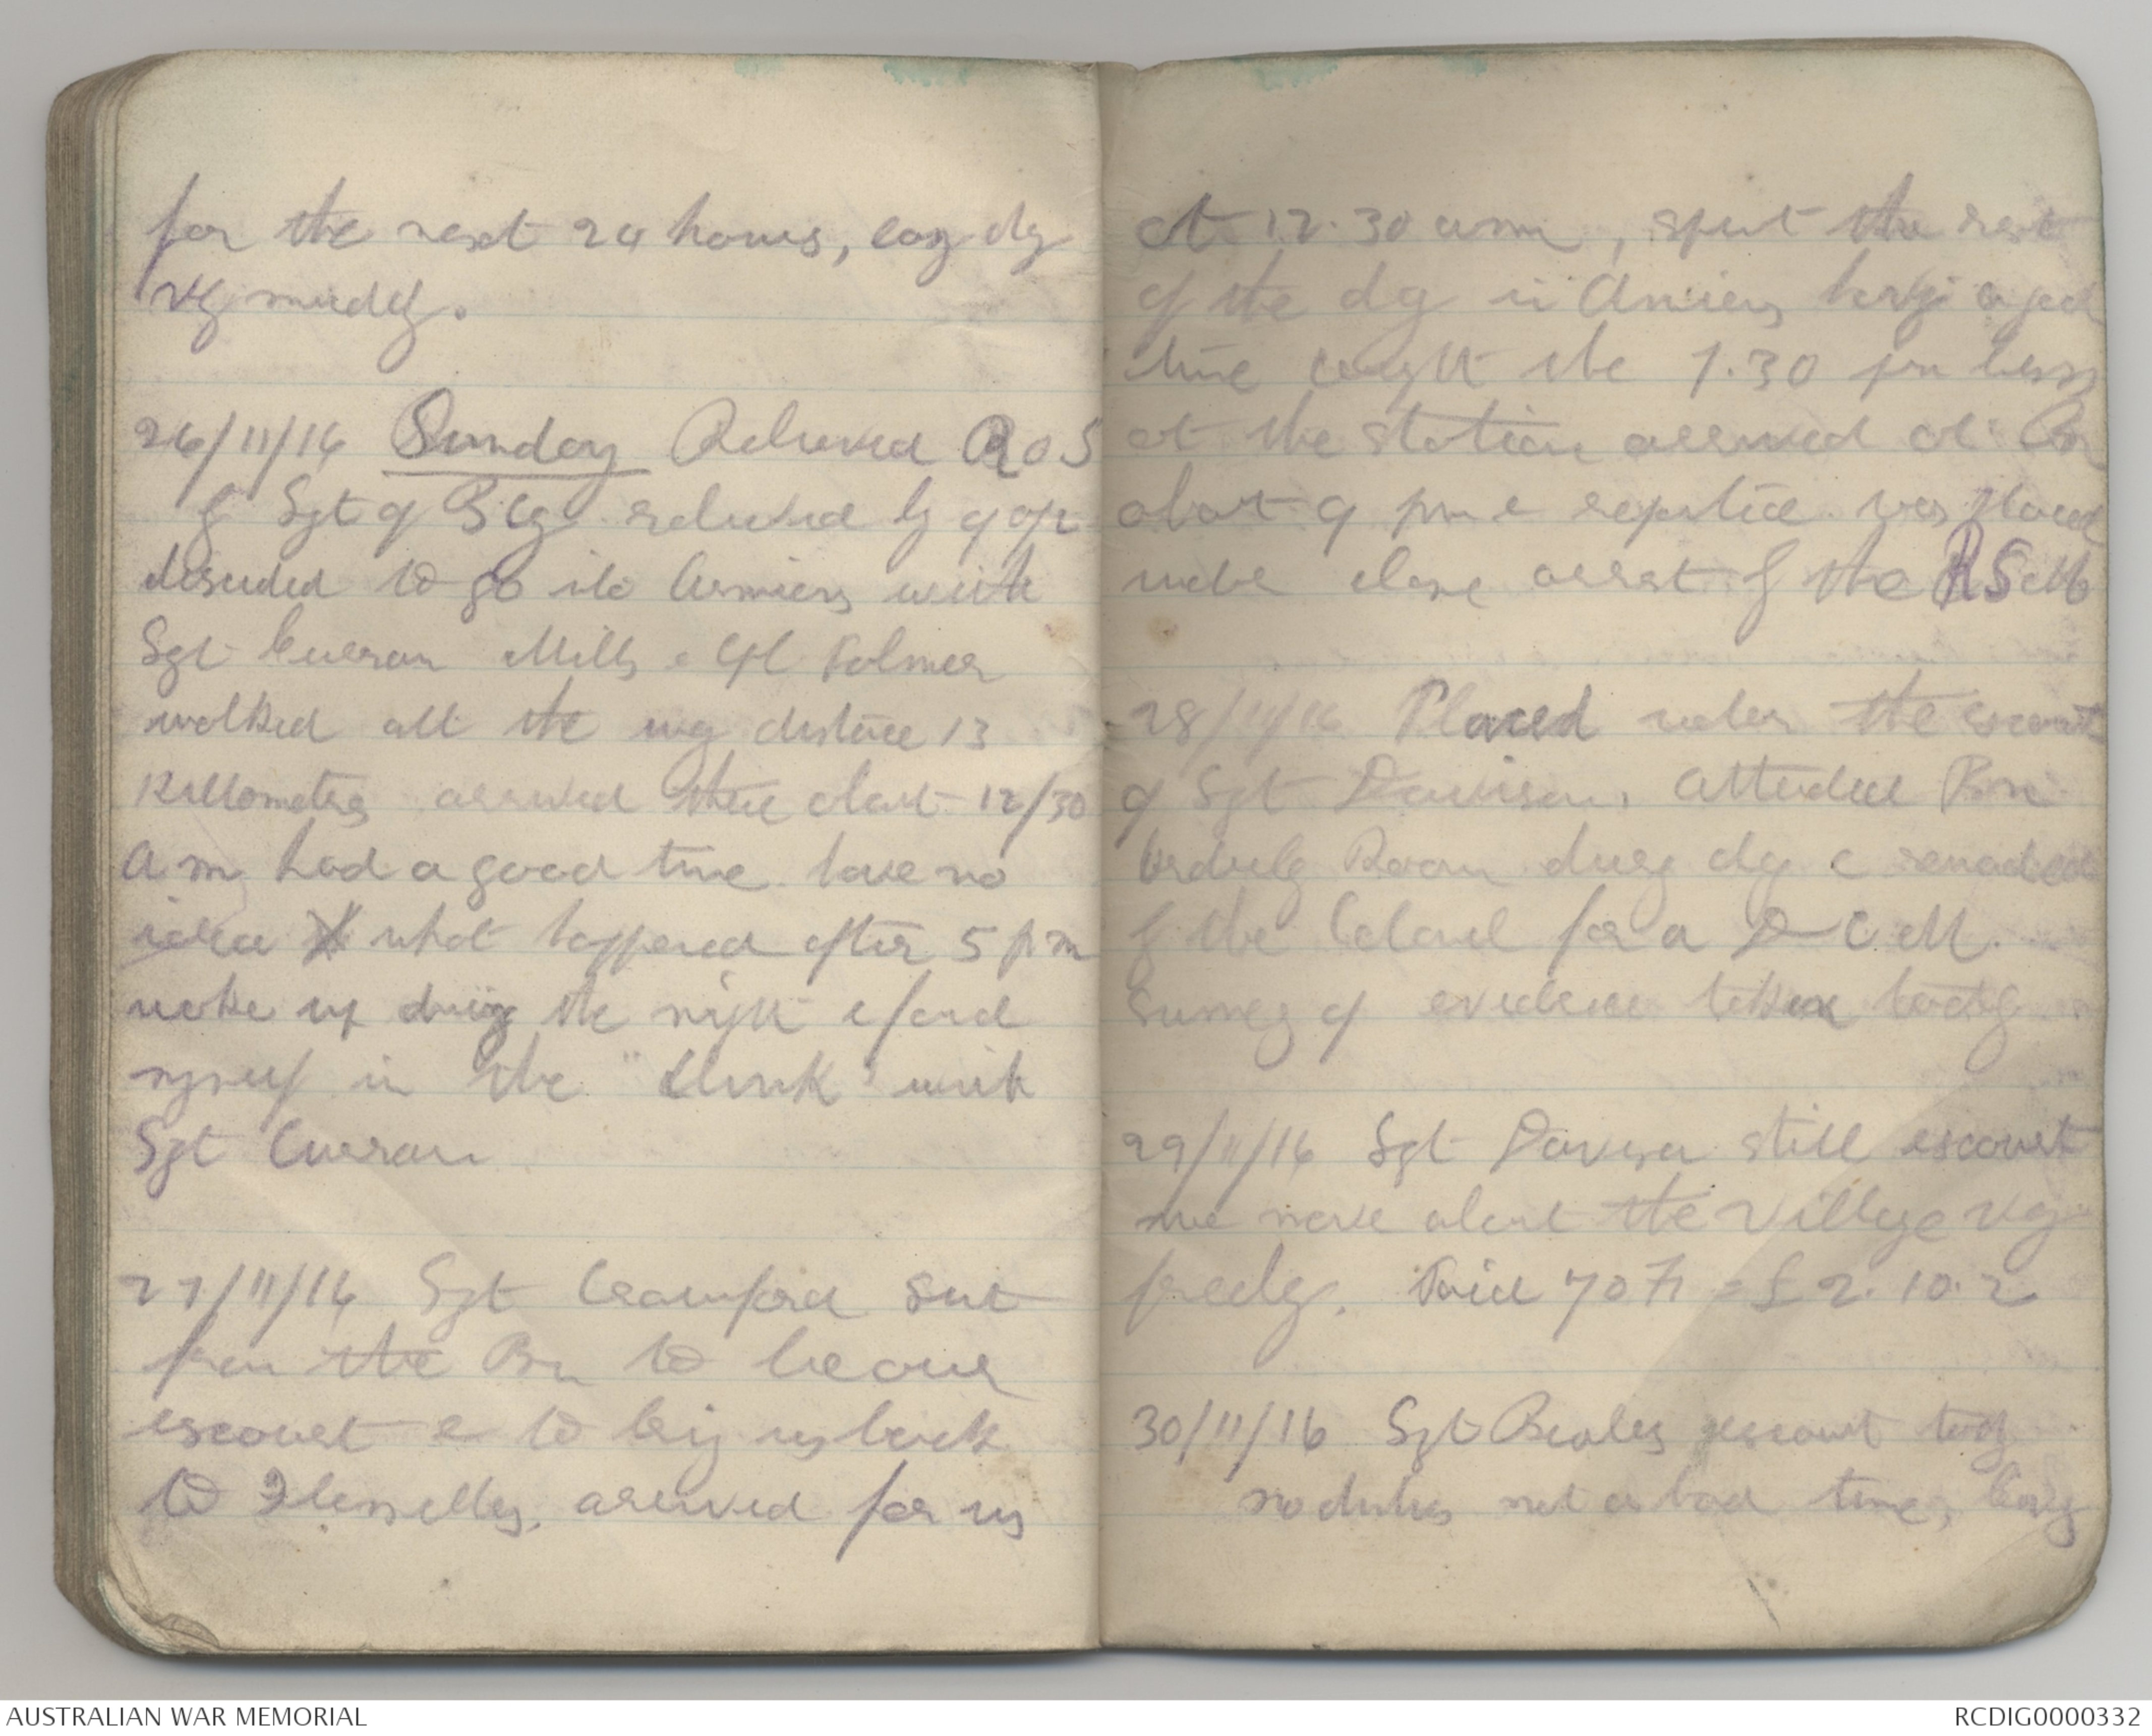 for the next 24 hours, easy dy
vy muddy.
26/11/16 Sunday Relieved R O S
by Sgt of B Cy relieved by
desided to go ito Armiens with
Sgt Curran Mills & Cpl Palmer
walked all the way distance 13
Killometres arrived there about 12/30
a m had a good time have no
idea what happened after 5 p m
woke up durig the night & found
myself in the "Clink" with
Sgt Curran
27/11/16 Sgt Crawford sent
from the Bn to be our
escourt & to brig us back
to Flesselles, arrived for us
at 12.30 a m, spent the rest
of the dy in Amiens havg a good
time caught the 7.30 pm
at the station arrived at Bn
about 9 pm & reported was placed
under close arrest by the R S M
28/11/16 Placed under the escourt
of Sgt Davison, attended Bn
Orderly Room durg dy & remanded
by the Colonel for a D C M.
Sumey of evidence taken today
29/11/16 Sgt Davison still escourt
we move about the Village vy
freely. Paid 70 Fr = £2.10.2
30/11/16 Sgt Beales escourt tody
no duties not a bad time,
AUSTRALIAN WAR MEMORIAL
RCDIG0000332